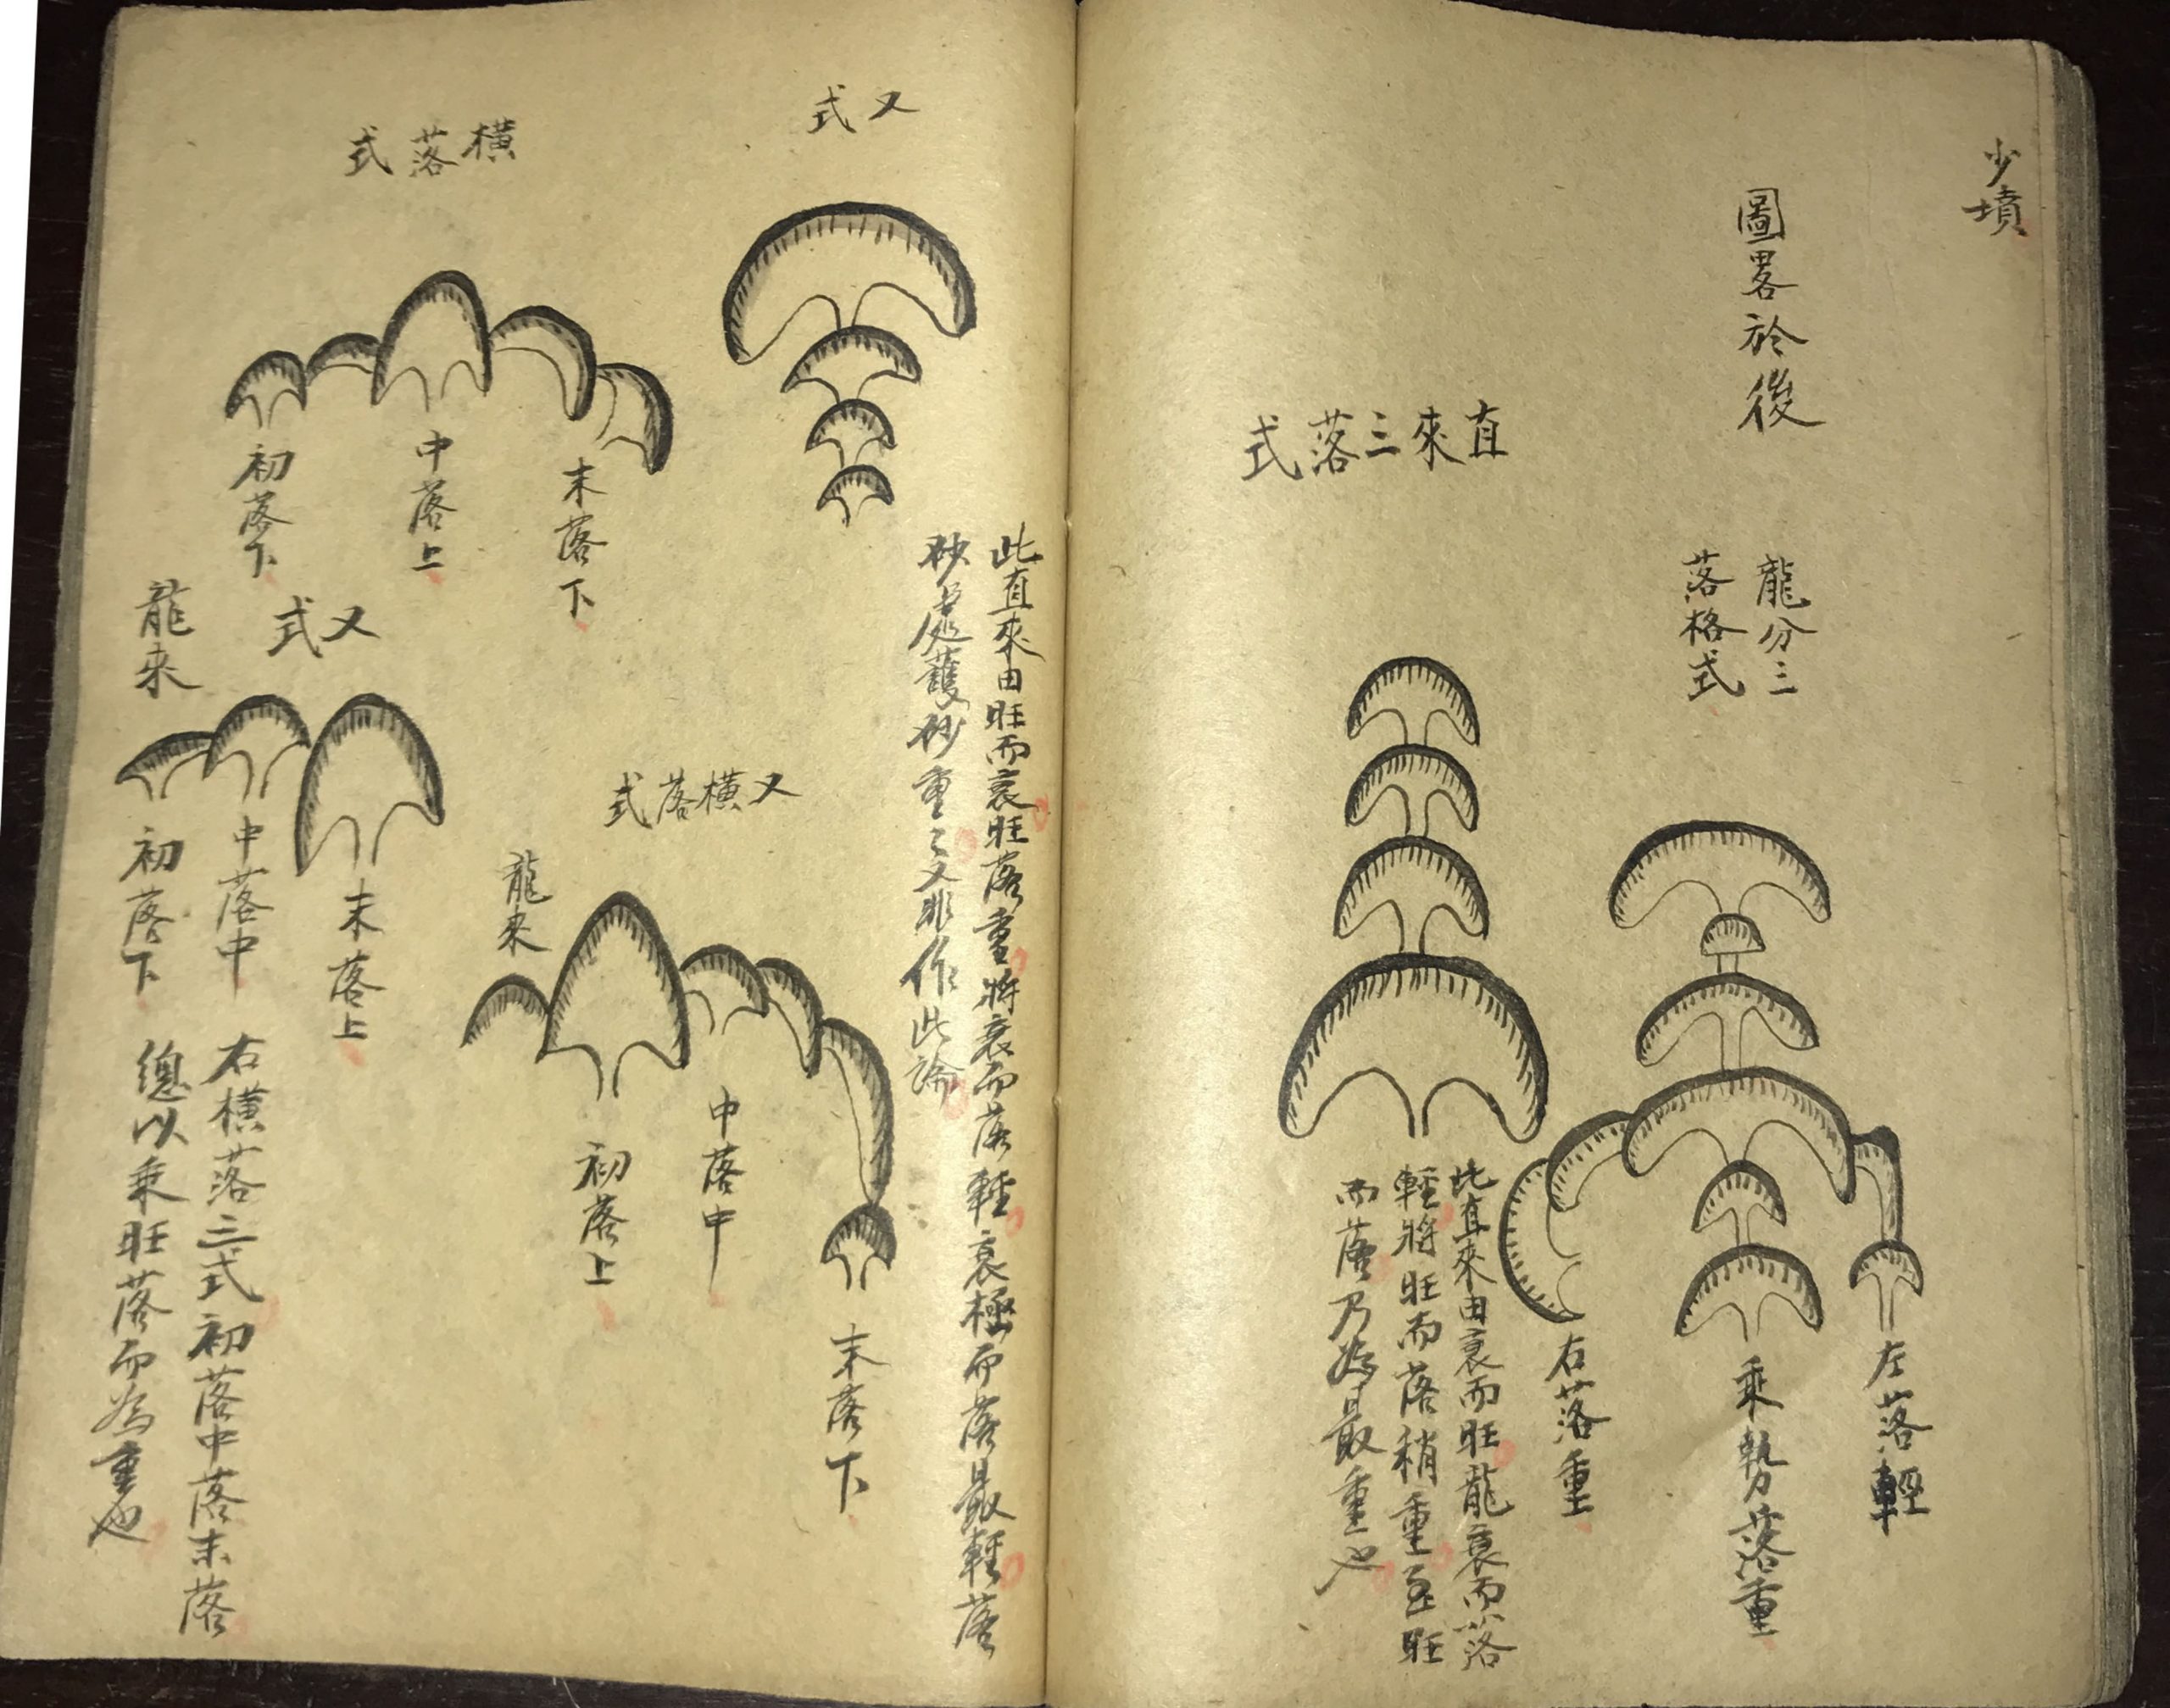 少墳
圖畧於後
龍分三
落格式
左落輕
乘勢落重
右落重
直來三落式
此直來由衰而旺龍衰而落
輕將旺而落稍重至旺
而落乃為最重也
又式
此直來由旺而衰旺落重將衰而落輕衰極而落最輕落
砂處護砂重之又非作此論
橫落式
末落下
中落上
初落下
又橫落式
龍來
初落上
中落中
末落下
又式
龍來
末落上
中落中
初落下
右橫落三式初落中落末落
總以乘旺落而為重也